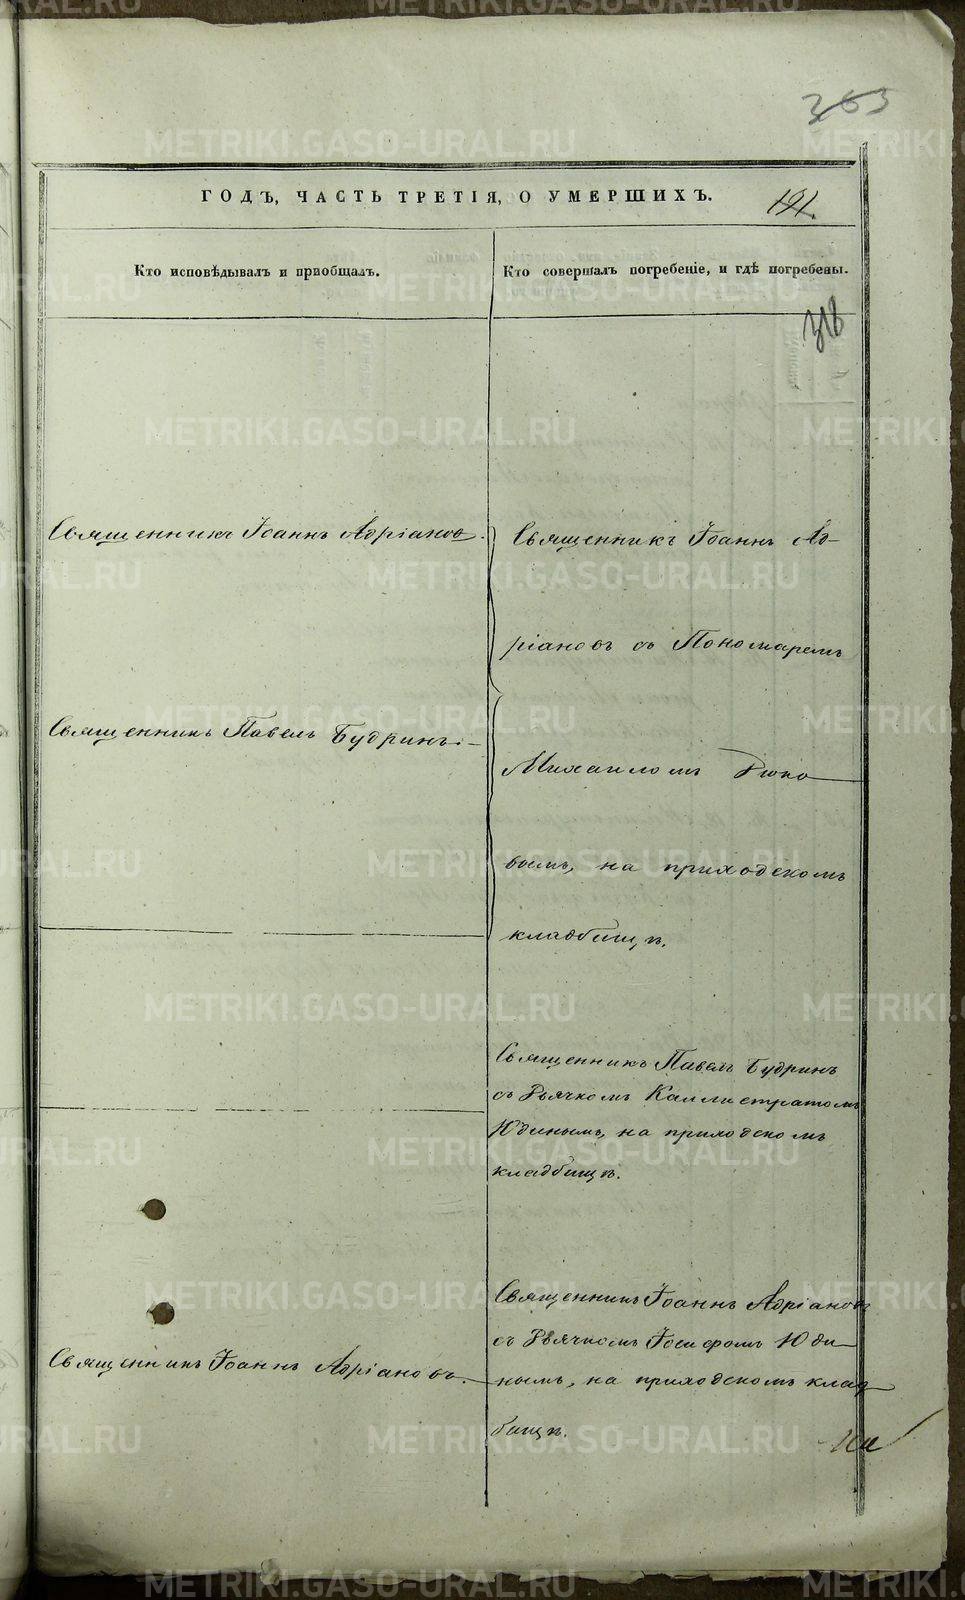 363
ГОДЪ, ЧАСТЬ ТРЕТІЯ, О УМЕРШИХЪ.
191.
Кто исповѣдывалъ и пріобщалъ.
Кто совершалъ погребеніе, и гдѣ погребены.
318
Священникъ Іоаннъ Адріановъ.
Священникъ Павелъ Будринъ.
Священникъ Іоаннъ Ад-
ріановъ съ Пономаремъ
Михаиломъ
вымъ, на приходскомъ
кладбищѣ.
Священникъ Павелъ Будринъ
съ Дьячкомъ Каллистратомъ
Юдинымъ, на приходскомъ
кладбищѣ.
Священникъ Іоаннъ Адріановъ.
Священникъ Іоаннъ Адріановъ
съ Дьячкомъ Іосифомъ Юди-
нымъ, на приходскомъ клад-
бищѣ.
METRIKI.GASO-URAL.RU